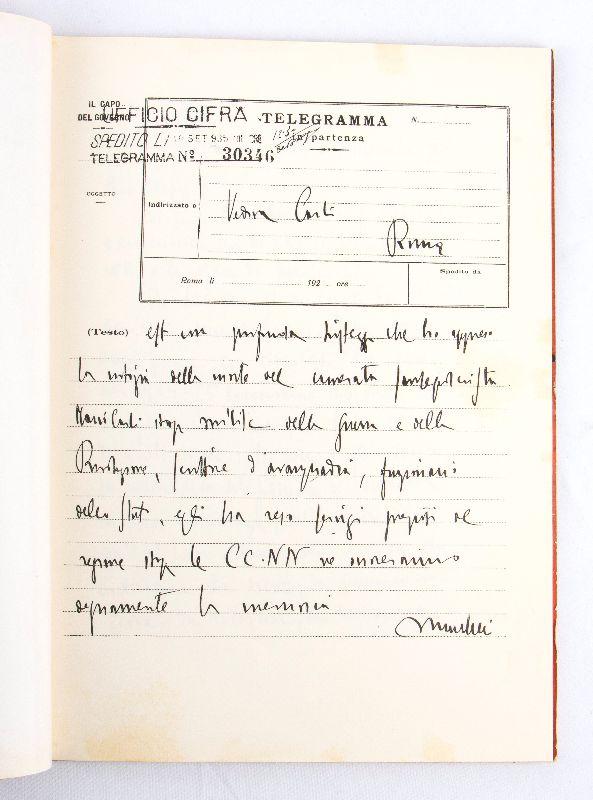 IL CAPO
DEL GOVERNO
UFFICIO CIFRA
TELEGRAMMA N.
SPEDITO LI SET 935
in partenza
TELEGRAMMA Nº 30346
OGGETTO
Indirizzato a
Vedova Carli
Roma
Spedito da
Roma li 192 ore
(Testo) est con profonda tristezza che ho appreso
la notizia della morte del camerata sansepolcrista
Mario Carli stop milite della guerra e della
Rivoluzione, scrittore d'avanguardia, funzionario
dello Stato, egli ha reso servigi preziosi al
regime stop le CC.NN ne onoreranno
degnamente la memoria
Mussolini